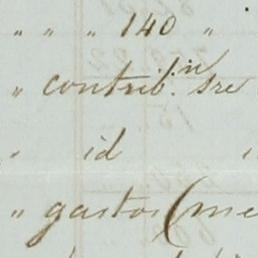 " " " 140 "
" contrib.n sre
" id
" gastos (me